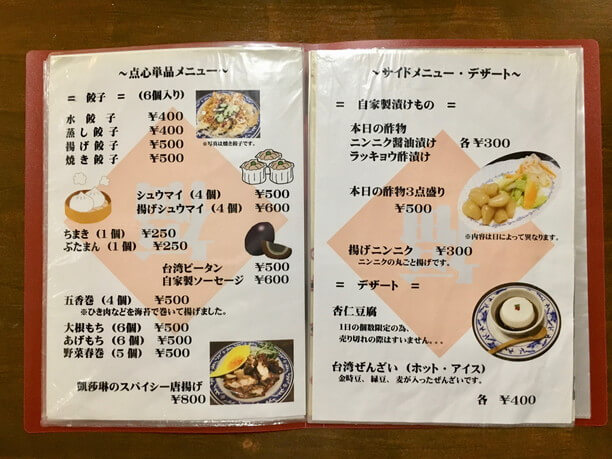 ～点心単品メニュー～
＝ 餃子 ＝ (6個入り)
水 餃 子 ¥400
蒸し餃子 ¥400
揚げ餃子 ¥500
焼き餃子 ¥500
※写真は焼き餃子です。
シュウマイ (4個) ¥500
揚げシュウマイ (4個) ¥600
ちまき (1個) ¥250
ぶたまん (1個) ¥250
台湾ピータン ¥500
自家製ソーセージ ¥600
五香巻 (4個) ¥500
※ひき肉などを海苔で巻いて揚げました。
大根もち (6個) ¥500
あげもち (6個) ¥500
野菜春巻 (5個) ¥500
凱莎琳のスパイシー唐揚げ
¥800
～サイドメニュー・デザート～
＝ 自家製漬けもの ＝
本日の酢物
ニンニク醤油漬け 各¥300
ラッキョウ酢漬け
本日の酢物3点盛り
¥500
※内容は日によって異なります。
揚げニンニク ¥300
ニンニクの丸ごと揚げです。
＝ デザート ＝
杏仁豆腐
1日の個数限定の為、
売り切れの際はすいません。。。
台湾ぜんざい (ホット・アイス)
金時豆、緑豆、麦が入ったぜんざいです。
各 ¥400